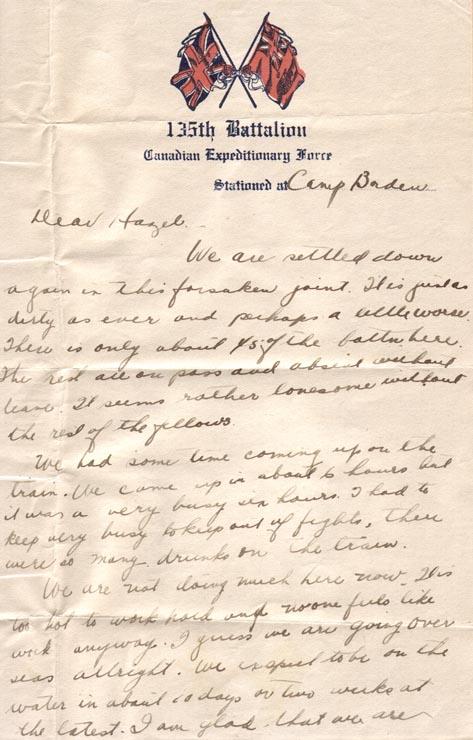 135th Battalion
Canadian Expeditionary Force
Stationed at Camp Borden
Dear Hazel.
We are settled down
again in this forsaken joint. It is just as
dirty as ever and perhaps a little worse.
There is only about of the battn here.
The rest are on pass and absent without
leave. It seems rather lonesome without
the rest of the fellows.
We had some time coming up on the
train. We came up in about 6 hours but
it was a very busy six hours. I had to
keep very busy to keep out of fights, there
were so many drunks on the train.
We are not doing much here now. It is
too hot to work hard and no one feels like
work anyway. I guess we are going over
seas allright. We expect to be on the
water in about 10 days or two weeks at
the latest. I am glad that we are